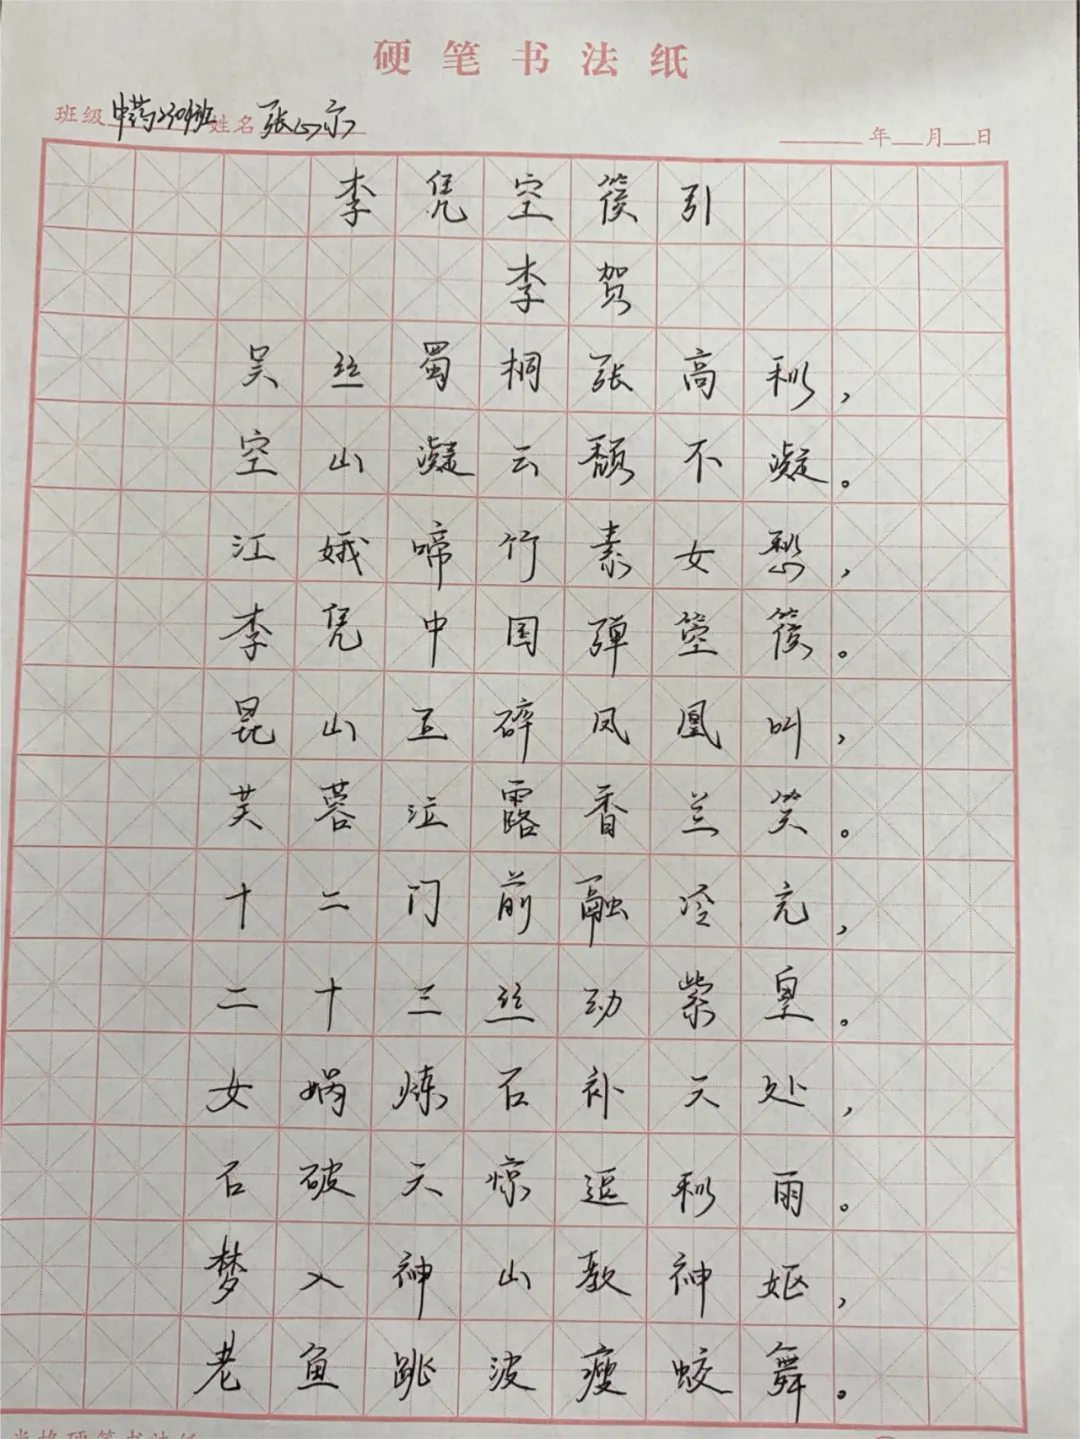 硬笔书法纸
班级 中药 班 姓名 张
年 月 日
李凭空篌引
李贺
吴丝蜀桐张高秋，
空山凝云颓不凝。
江娥啼竹素女愁，
李凭中国弹箜篌。
昆山玉碎凤凰叫，
芙蓉泣露香兰笑。
十二门前融冷光，
二十三丝动紫皇。
女娲炼石补天处，
石破天惊逗秋雨。
梦入神山教神妪，
老鱼跳波瘦蛟舞。